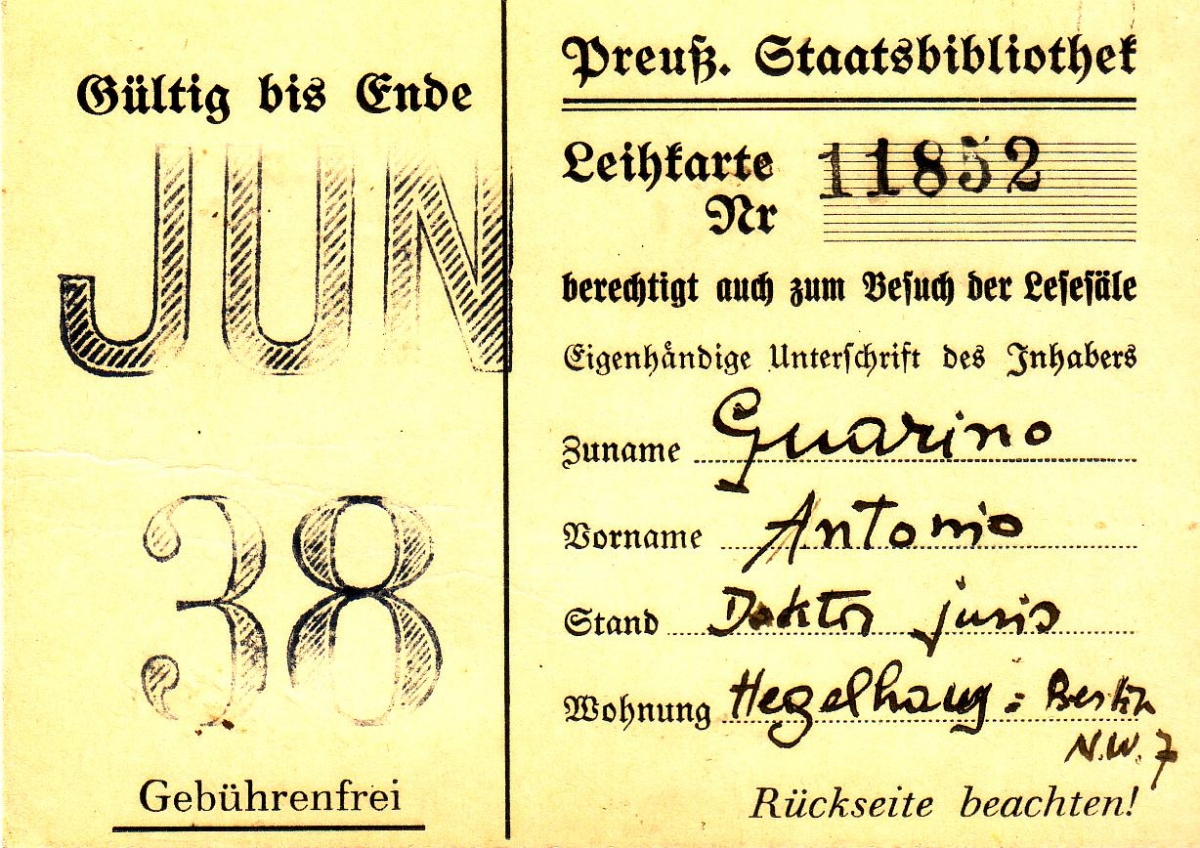 Gültig bis Ende
JUN
38
Gebührenfrei
Preuß. Staatsbibliothek
Leihkarte 11852
Nr
berechtigt auch zum Besuch der Lesesäle
Eigenhändige Unterschrift des Inhabers
Zuname Guarino
Vorname Antonio
Stand Doktor juris
Wohnung Hegelhaus: Berlin
N.W. 7
Rückseite beachten!